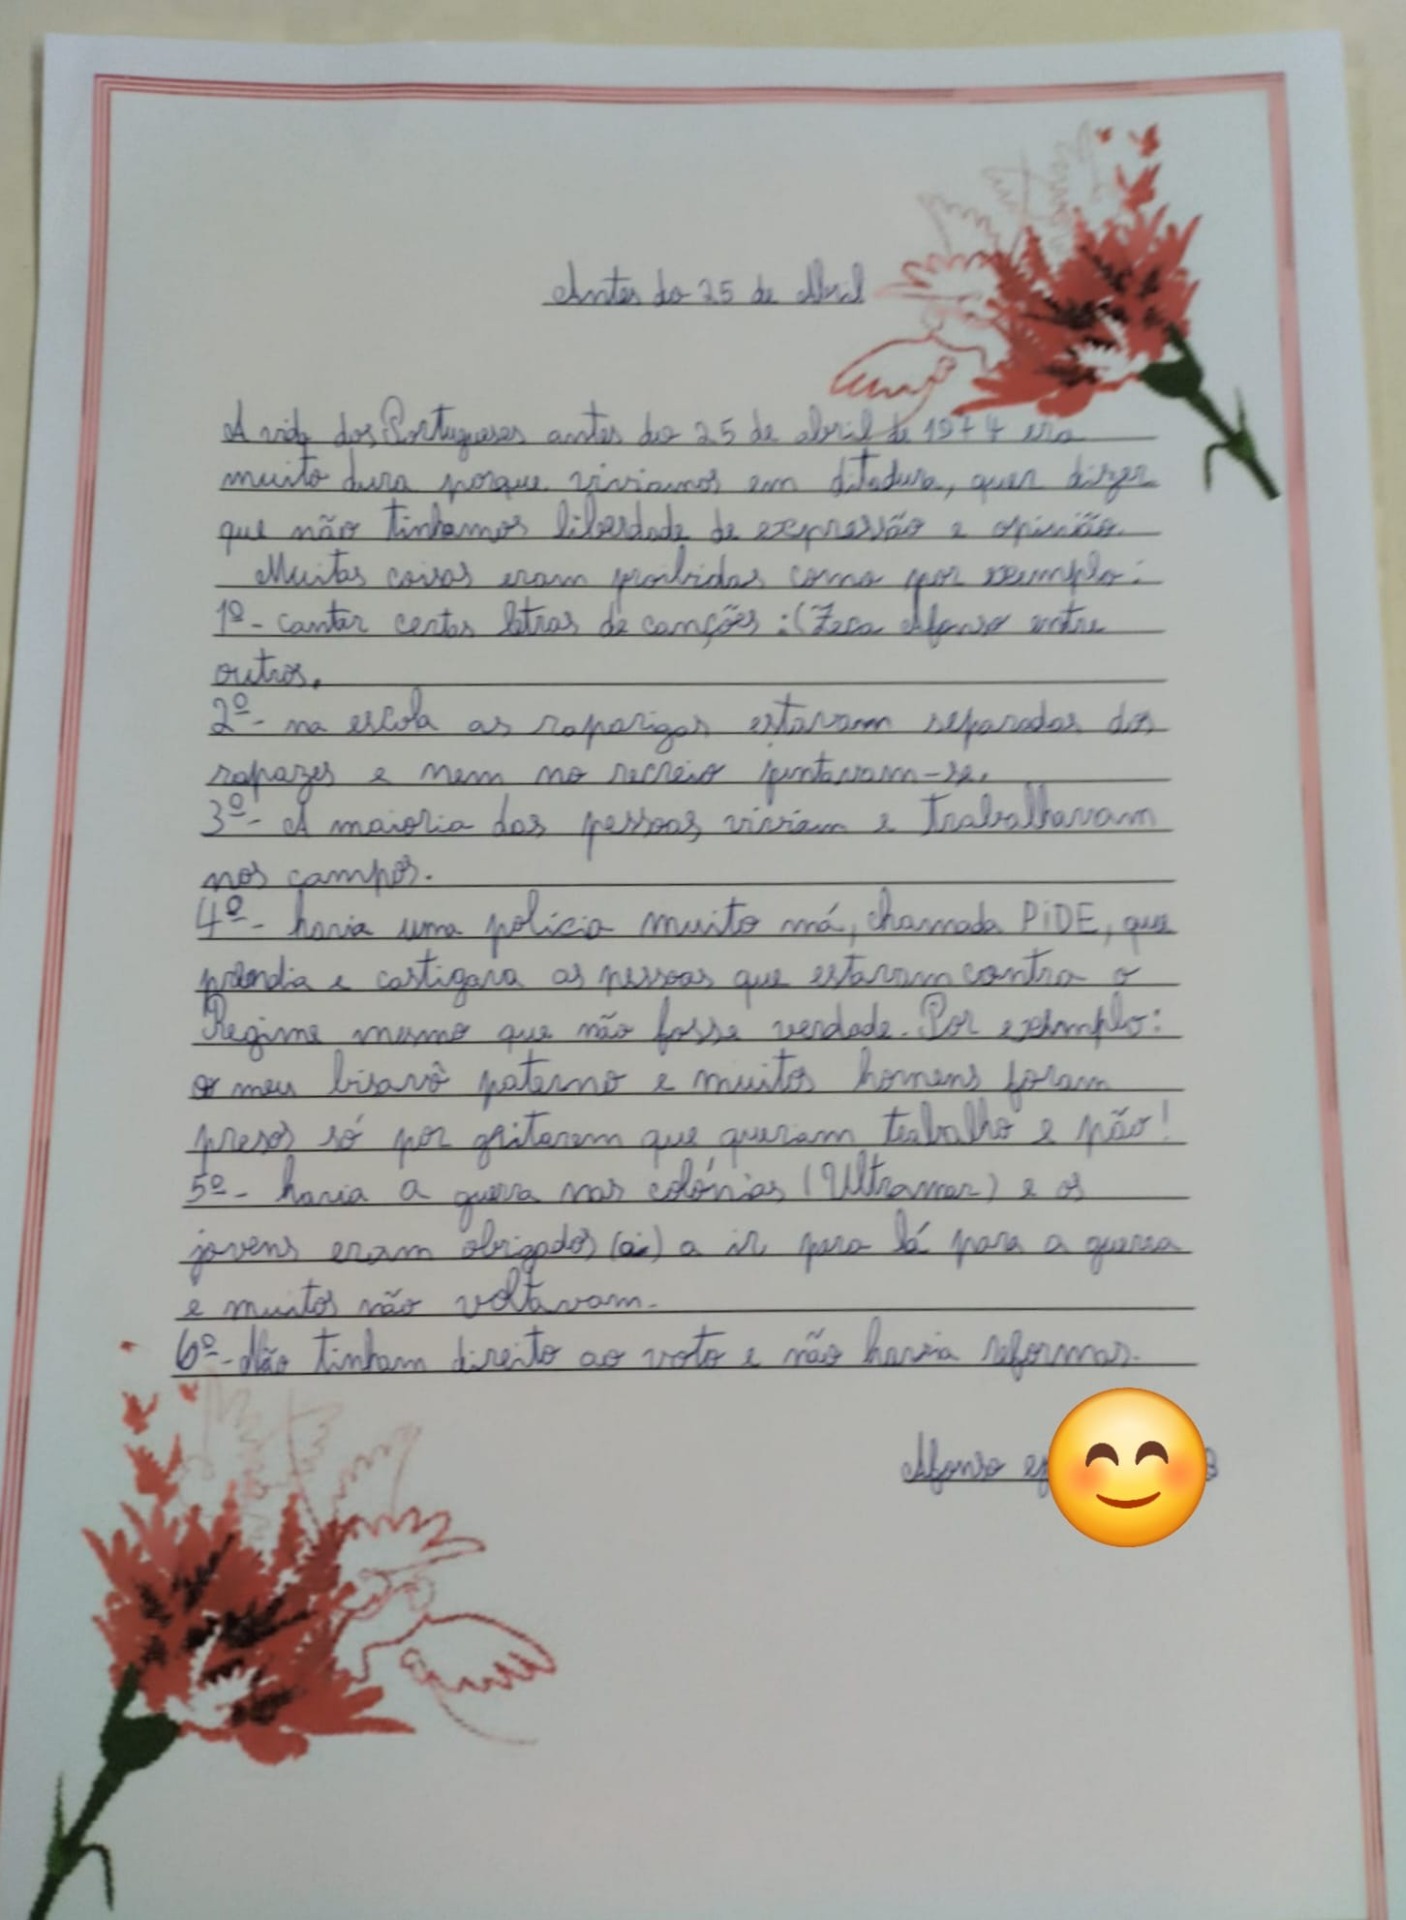 Antes do 25 de Abril
A vida dos Portugueses antes do 25 de abril de 1974 era
muito dura porque viviamos em ditadura, quer dizer
que não tinhamos liberdade de expressão e opinião.
Muitas coisas eram proibidas como por exemplo:
1º- cantar certas letras de canções :(Zeca Afonso entre
outros.
2º- na escola as raparigas estavam separadas dos
rapazes e nem no recreio juntavam-se.
3º- A maioria das pessoas viviam e trabalhavam
nos campos.
4º- havia uma polícia muito má, chamada PiDE, que
prendia e castigava as pessoas que estavam contra o
Regime mesmo que não fosse verdade. Por exemplo:
o meu bisavô paterno e muitos homens foram
presos só por gritarem que queriam trabalho e pão!
5º- havia a guerra nas colónias (Ultramar) e os
jovens eram obrigados a ir para lá para a guerra
e muitos não voltavam.
6º- Não tinham direito ao voto e não havia reformas.
Afonso